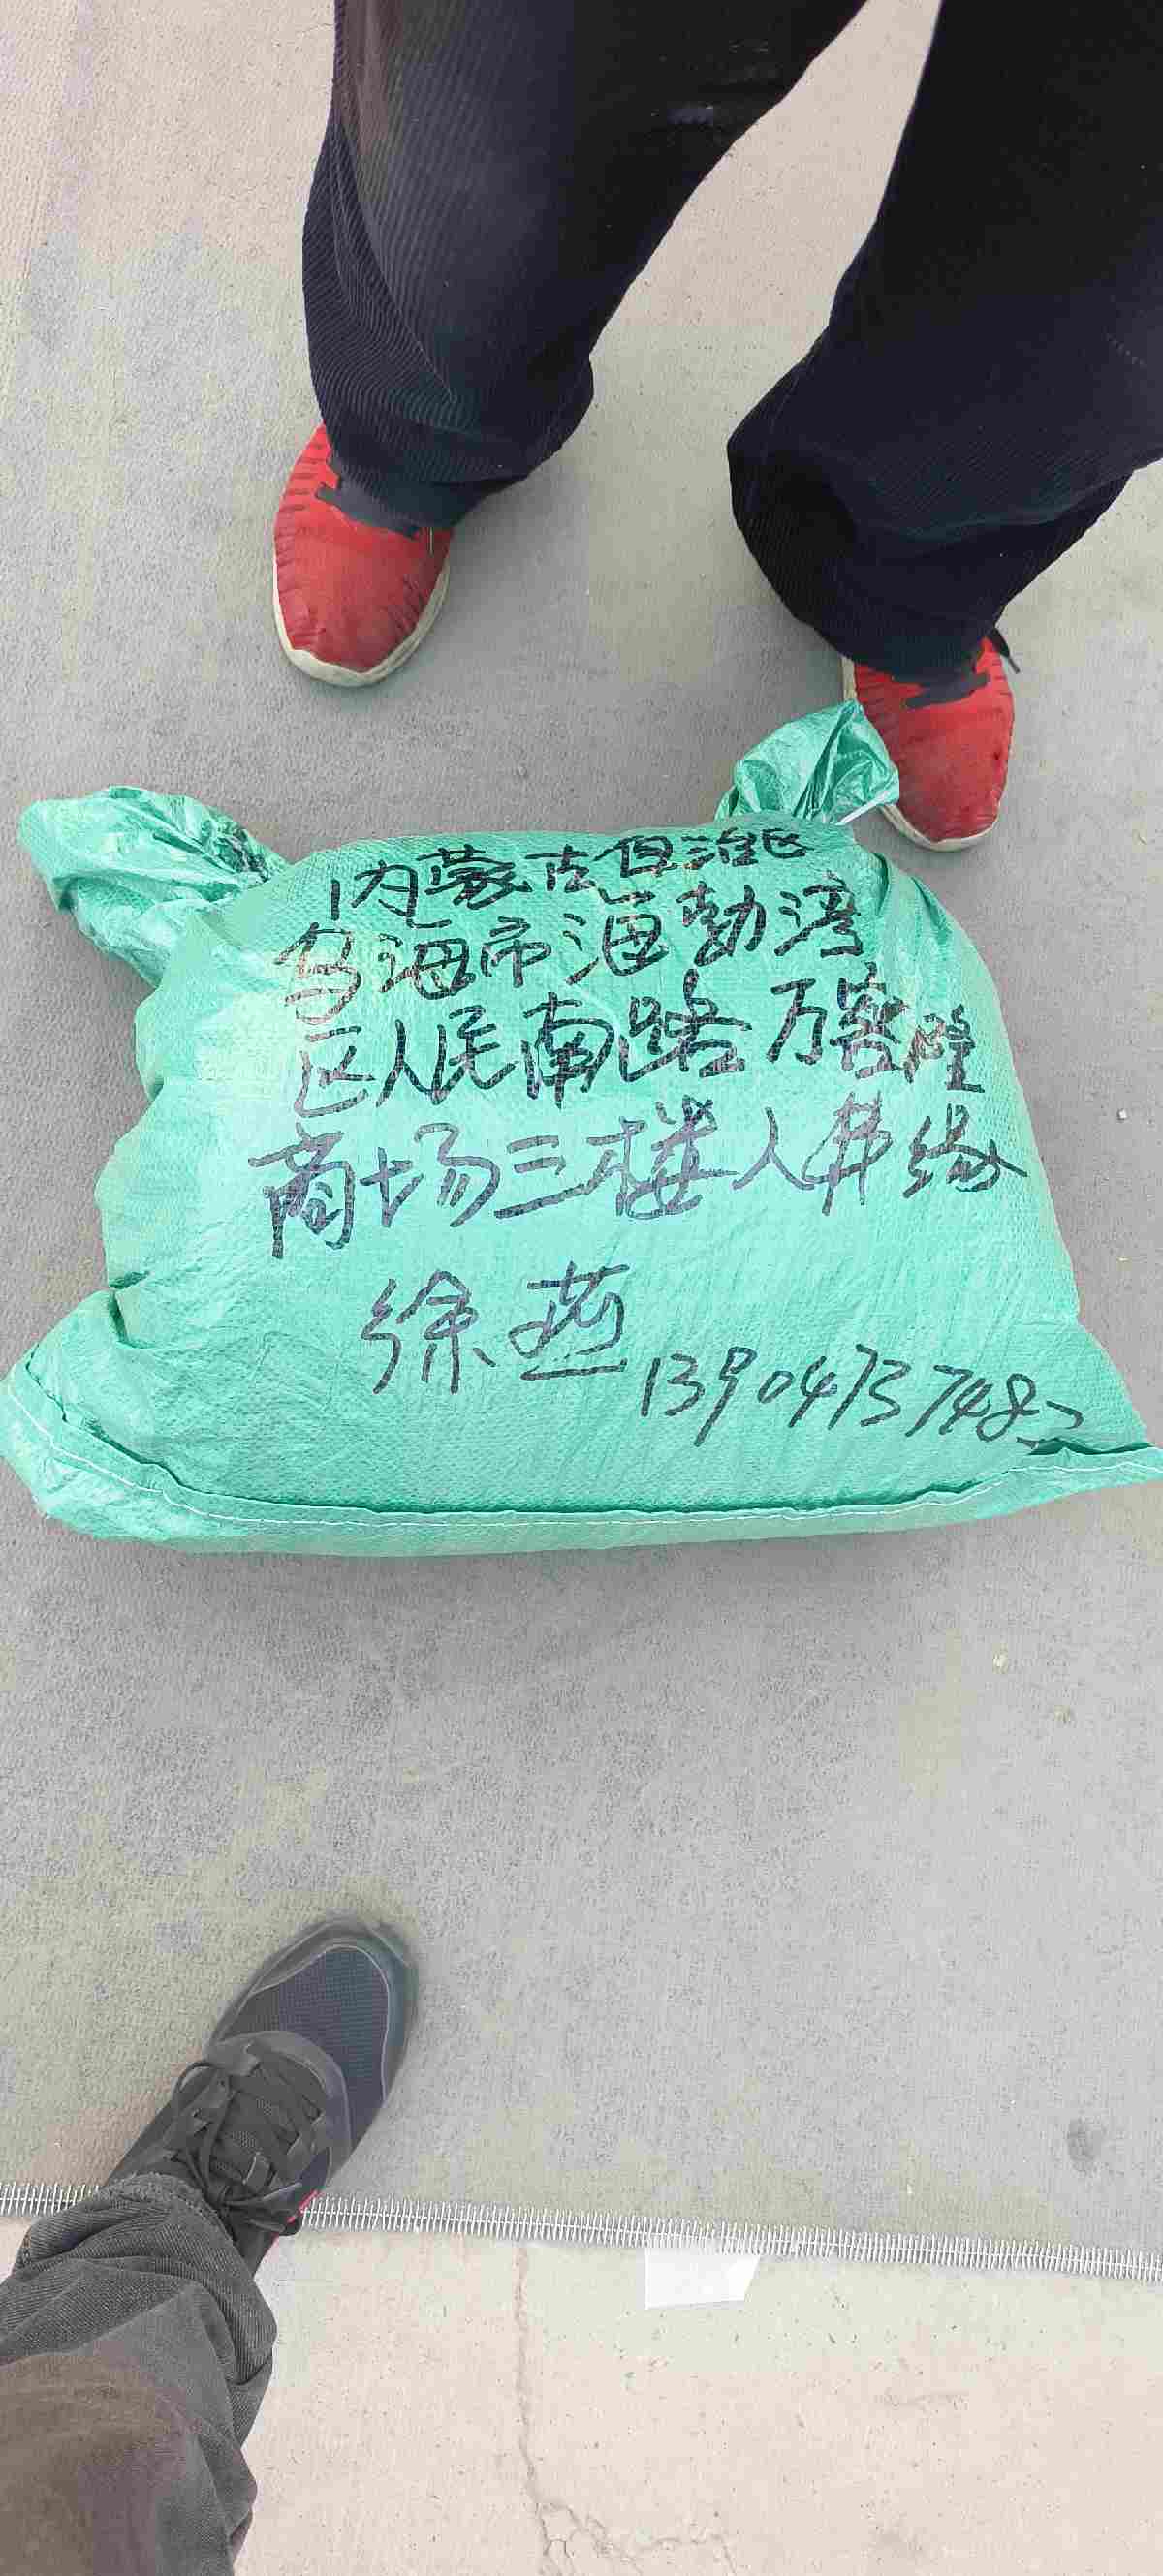 内蒙古自治区
乌海市海勃湾
区人民南路万客隆
商场三楼人井缘
徐燕
13904737482